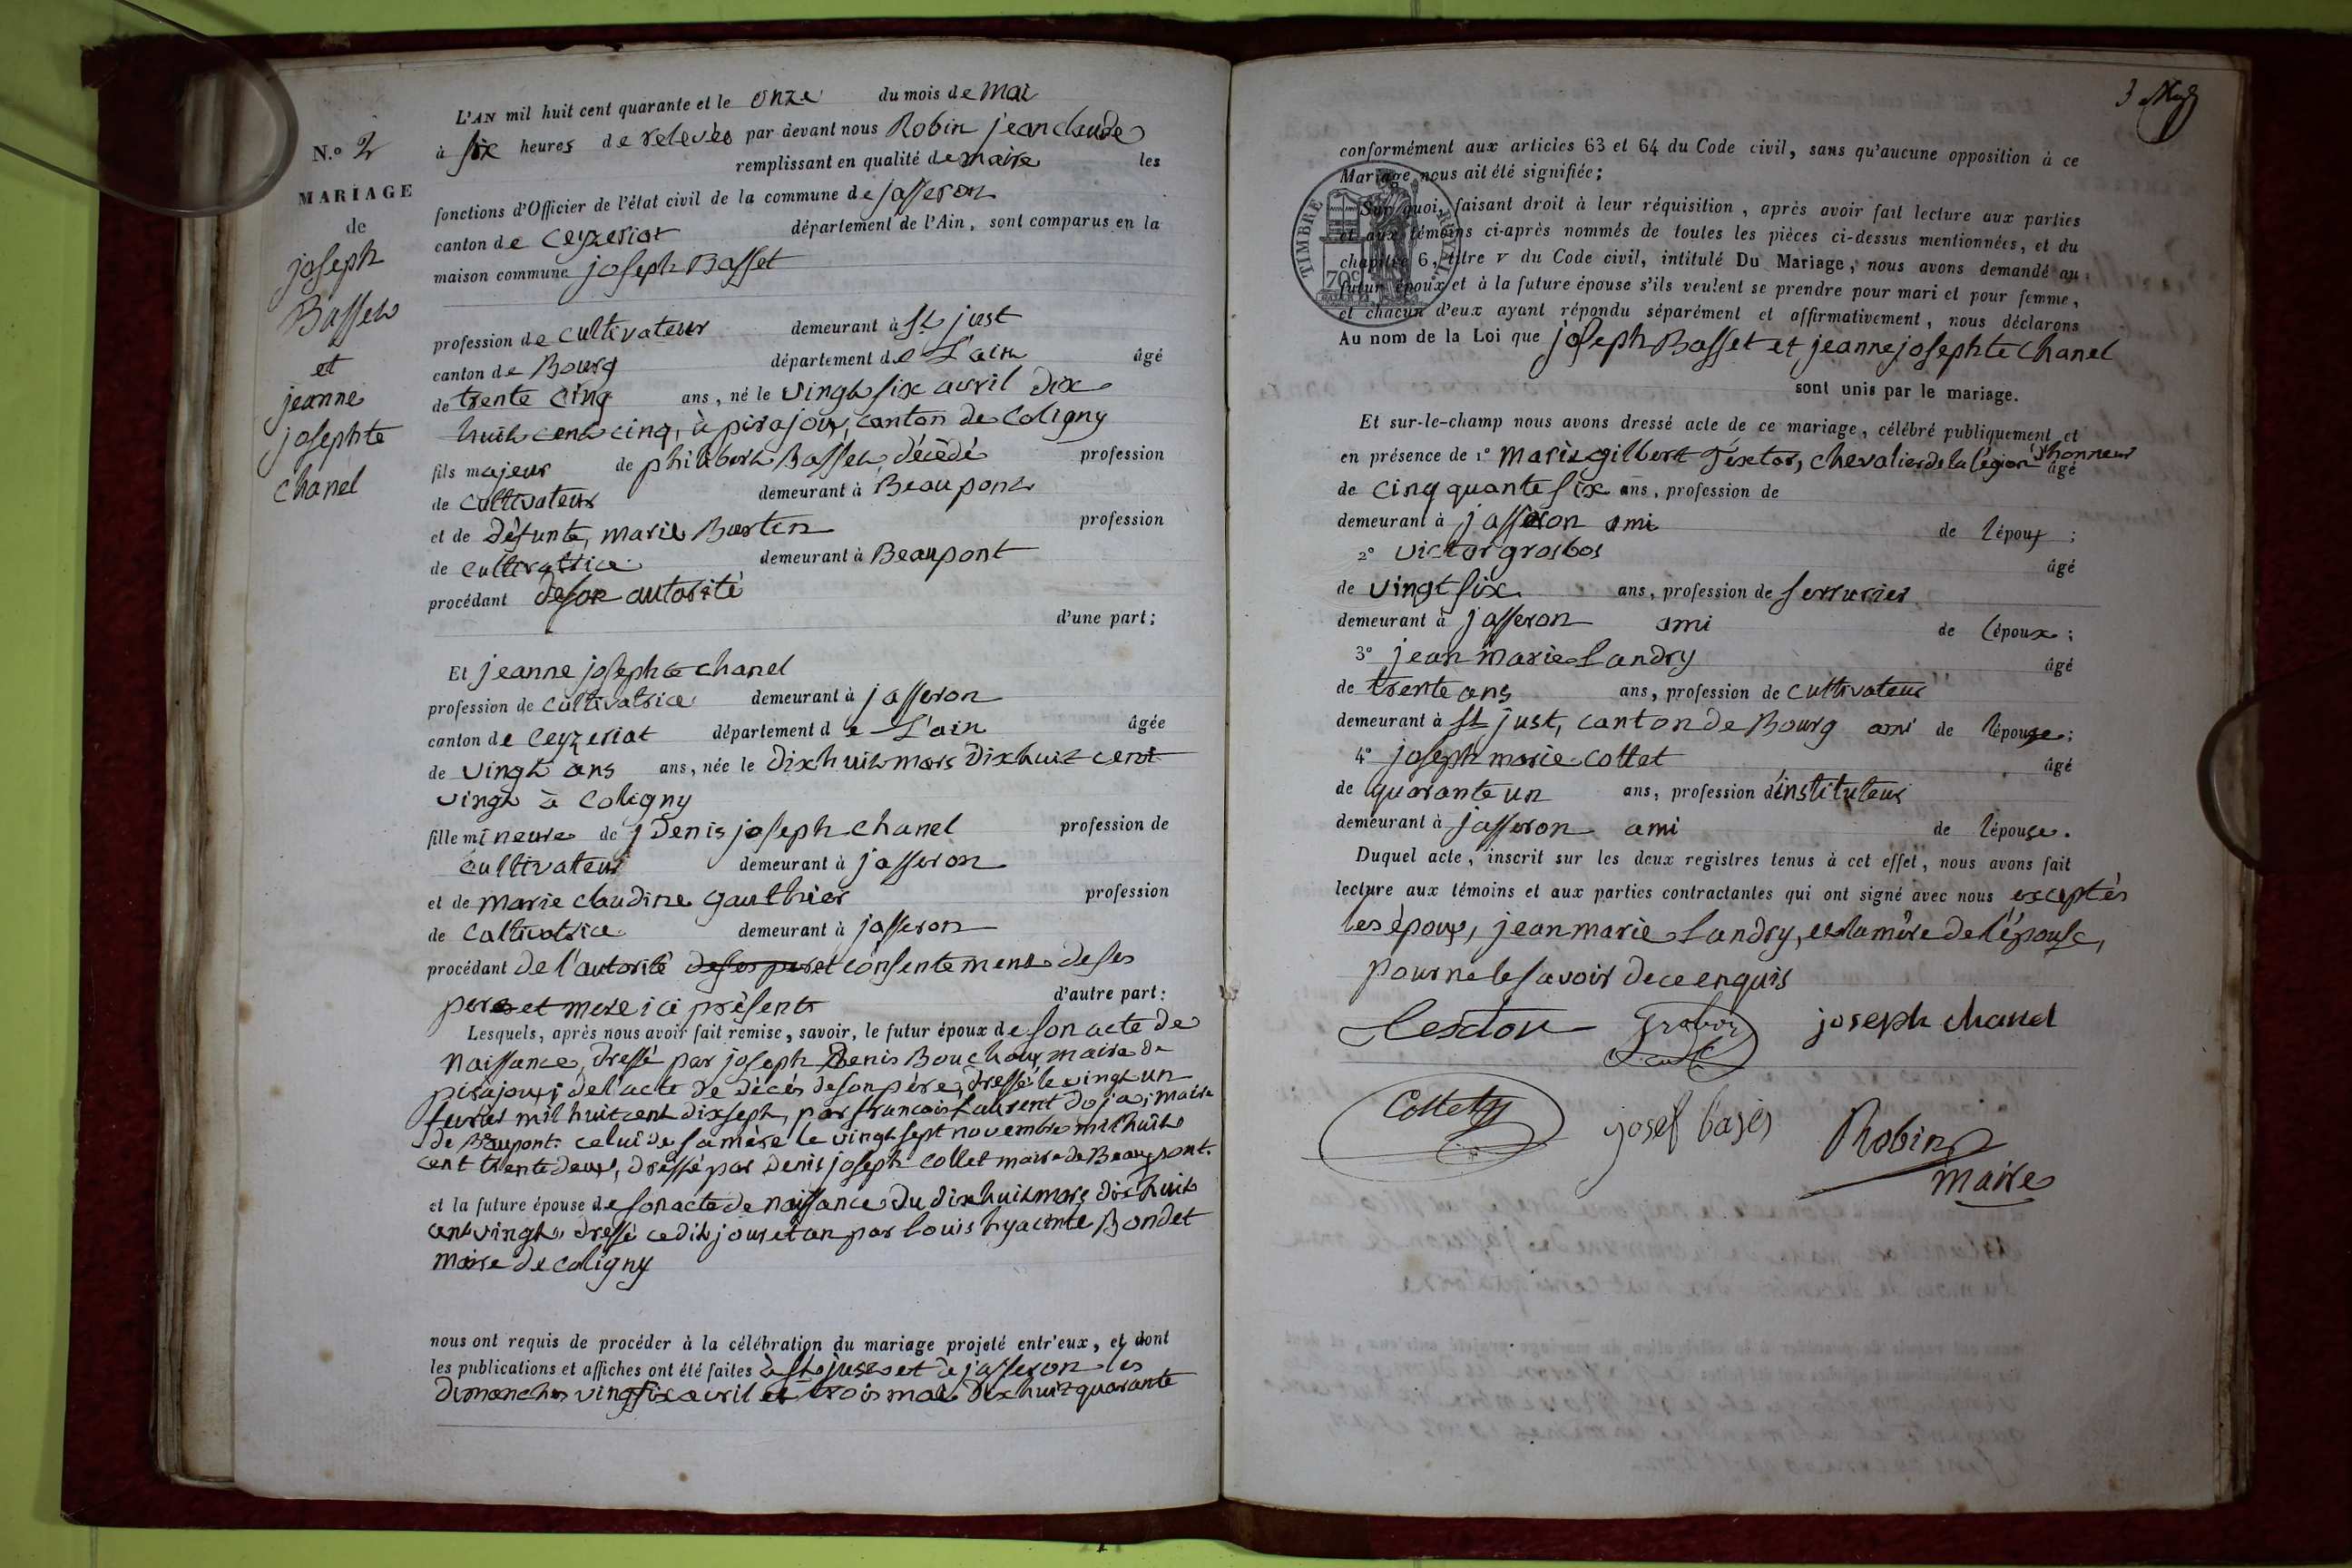 N.o 2
MARIAGE
de
joseph
Basset
et
jeanne
josephte
chanel
L'AN mil huit cent quarante et le onze du mois de mai
à six heures de relevée par devant nous Robin jean claude
remplissant en qualité de maire les
fonctions d'Officier de l'état civil de la commune de jasseron
canton de ceyzeriat département de l'Ain, sont comparus en la
maison commune joseph Basset
profession de cultivateur demeurant à St just
canton de Bourg département de L'ain âgé
de trente cinq ans, né le vingt six avril dix
huit cent cinq, à pirajoux, canton de Coligny
fils majeur de philibert Basset, décédé profession
de cultivateur demeurant à Beaupont
et de défunte, marie profession
de cultivatrice demeurant à Beaupont
procédant de son autorité
d'une part;
Et jeanne josephte chanel
profession de cultivatrice demeurant à jasseron
canton de ceyzeriat département de L'ain âgée
de vingt ans ans, née le dix huit mars dix huit cent
vingt à Coligny
fille mineure de j Denis joseph chanel profession de
cultivateur demeurant à jasseron
et de marie claudine gauthier profession
de cultivatrice demeurant à jasseron
procédant de l'autorité de ses per et consentement de ses
pere et mere ici présents d'autre part:
Lesquels, après nous avoir fait remise, savoir, le futur époux de son acte de
naissance, dressé par joseph Denis Bouchoux maire de
pirajoux; de l'acte de décès de son père, dressé le vingt un
fevrier mil huit cent dix sept, par francois Laurent maire
de Beaupont. celui de sa mère le vingt sept novembre mil huit
cent trente deux, dressé par Denis joseph Collet maire de Beaupont.
et la future épouse de son acte de naissance du dix huit mars dix huit
cent vingt, dressé cedit jour et an par louis hyacinte Bondet
maire de coligny
nous ont requis de procéder à la célébration du mariage projeté entr'eux, et dont
les publications et affiches ont été faites à St just et à jasseron les
dimanches vingt six avril et trois mai dix huit quarante
3
conformément aux articles 63 et 64 du Code civil, sans qu'aucune opposition à ce
Mariage nous ait été signifiée;
Sur quoi, faisant droit à leur réquisition, après avoir fait lecture aux parties
et aux témoins ci-après nommés de toutes les pièces ci-dessus mentionnées, et du
chapitre 6, titre v du Code civil, intitulé Du Mariage, nous avons demandé au
futur époux et à la future épouse s'ils veulent se prendre pour mari et pour femme,
et chacun d'eux ayant répondu séparément et affirmativement, nous déclarons
Au nom de la Loi que joseph Basset et jeanne josephte chanel
sont unis par le mariage.
TIMBRE ROYAL
70c
Et sur-le-champ nous avons dressé acte de ce mariage, célébré publiquement et
en présence de 1° marie gilbert Textor, chevalier de la légion d'honneur âgé
de cinq quante six ans, profession de
demeurant à jasseron ami de l'époux;
2° victor grosbos âgé
de vingt six ans, profession de serrurier
demeurant à jasseron ami de l'époux;
3° jean marie Landry âgé
de trente ans ans, profession de cultivateur
demeurant à St just, canton de Bourg ami de l'épouse;
4° joseph marie collet âgé
de quarante un ans, profession d'instituteur
demeurant à jasseron ami de l'épouse.
Duquel acte, inscrit sur les deux registres tenus à cet effet, nous avons fait
lecture aux témoins et aux parties contractantes qui ont signé avec nous exceptés
les époux, jean marie Landry, et la mère de l'épouse,
pour ne le savoir de ce enquis
Textor Grosbos joseph chanel
Collet josef bases Robin
maire